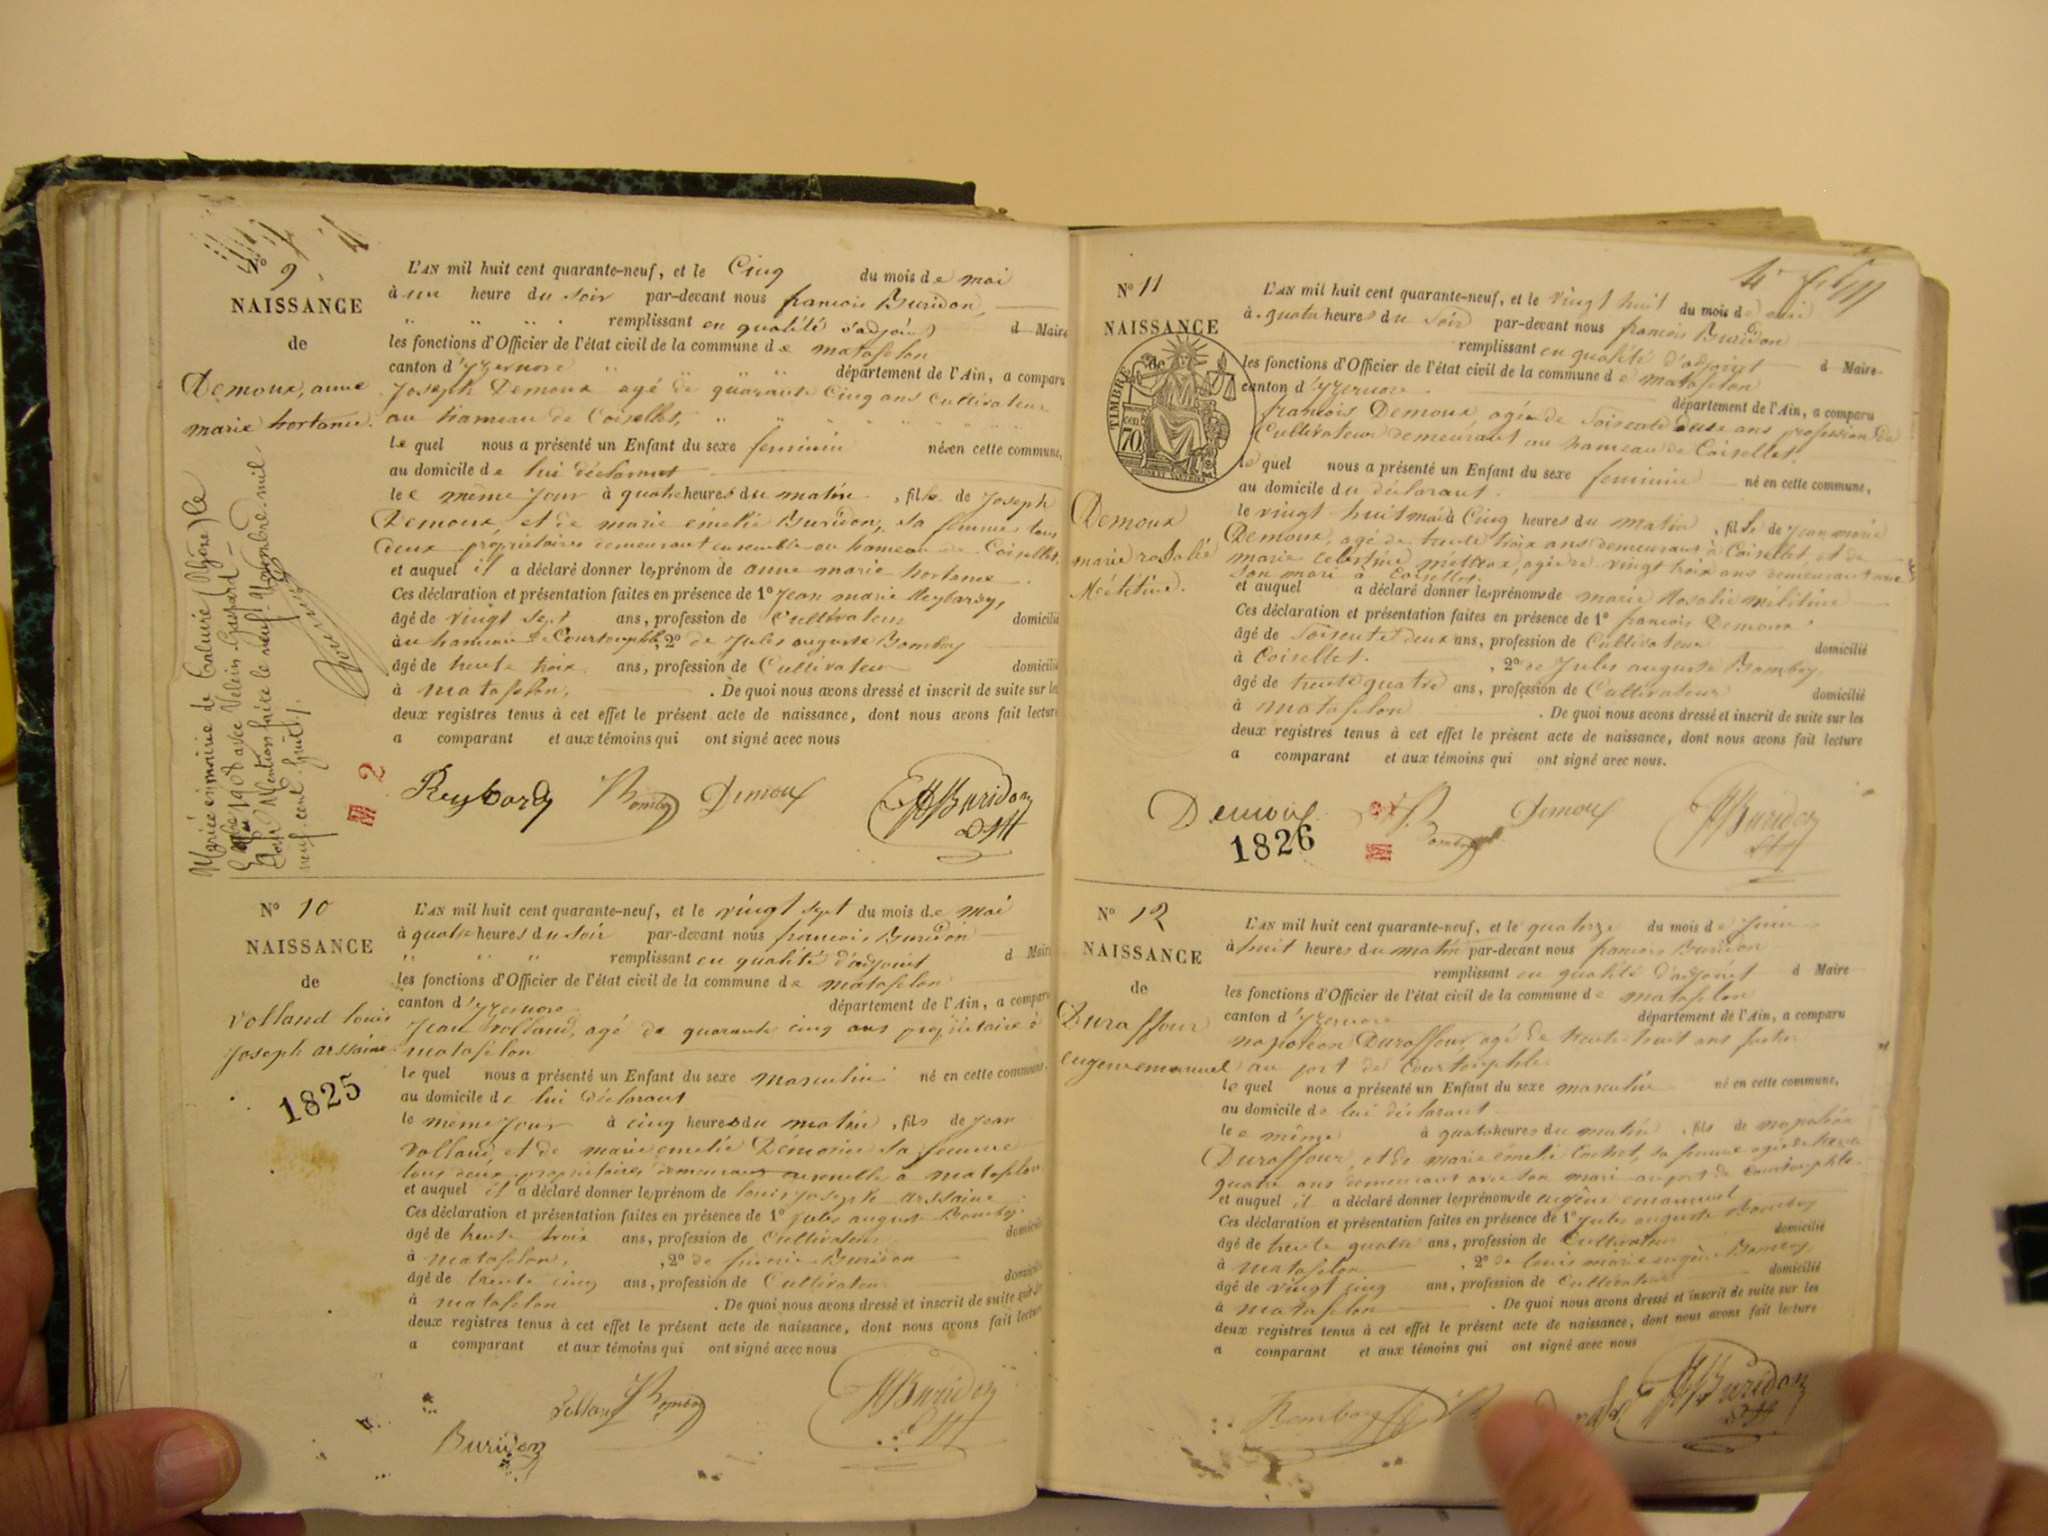 N° 9
NAISSANCE
de
Demoux, anne
marie hortance.
L'AN mil huit cent quarante-neuf, et le Cinq du mois de mai
à un heure du soir par-devant nous francois Buridon,
remplissant en qualité d'adjoint d Maire
les fonctions d'Officier de l'état civil de la commune de matafelon
canton d'yzernore département de l'Ain, a comparu
Joseph Demoux agé de quarante Cinq ans Cultivateur
au hameau de Coisellet,
le quel nous a présenté un Enfant du sexe feminin né en cette commune,
au domicile de lui déclarant
le même jour à quatre heures du matin, fille de Joseph
Demoux, et de marie émelie Buridon, sa femme tous
deux propriétaires demeurant ensemble au hameau de Coisellet,
et auquel il a déclaré donner le prénom de anne marie hortance.
Ces déclaration et présentation faites en présence de 1° Jean marie Reybard,
âgé de vingt sept ans, profession de Cultivateur domicilié
à au hameau de Courtouphle, 2° de Jules auguste Bomboy
âgé de trente trois ans, profession de Cultivateur domicilié
à matafelon, . De quoi nous avons dressé et inscrit de suite sur les
deux registres tenus à cet effet le présent acte de naissance, dont nous avons fait lecture
a comparant et aux témoins qui ont signé avec nous
Reybard Bomboy Demoux Buridon
Mariée en mairie de Caluire (Rhône) le
1908 avec Velein Gaspard
Mention faite le neuf novembre mil
neuf cent huit
M 2
N° 10
NAISSANCE
de
Volland louis
Joseph arssaine
1825
L'AN mil huit cent quarante-neuf, et le vingt sept du mois de mai
à quatre heures du soir par-devant nous francois Buridon
remplissant en qualité d'adjoint d Maire
les fonctions d'Officier de l'état civil de la commune de matafelon
canton d'yzernore département de l'Ain, a comparu
Jean Volland, agé de quarante cinq ans propriétaire à
matafelon
le quel nous a présenté un Enfant du sexe masculin né en cette commune,
au domicile de lui déclarant
le même jour à cinq heures du matin, fils de Jean
Volland et de marie emelie sa femme
tous deux propriétaires demeurant ensemble a matafelon
et auquel il a déclaré donner le prénom de louis joseph arssaine
Ces déclaration et présentation faites en présence de 1° jules auguste Bomboy
âgé de trente trois ans, profession de Cultivateur domicilié
à matafelon, 2° de Buridon
âgé de trente cinq ans, profession de Cultivateur domicilié
à matafelon . De quoi nous avons dressé et inscrit de suite sur les
deux registres tenus à cet effet le présent acte de naissance, dont nous avons fait lecture
a comparant et aux témoins qui ont signé avec nous
Volland Bomboy Buridon
Buridon
N° 11
NAISSANCE
de
TIMBRE
70
Demoux
marie rosalie
Mélitine.
L'AN mil huit cent quarante-neuf, et le vingt huit du mois de mai
à quatre heures du soir par-devant nous francois Buridon
remplissant en qualité d'adjoint d Maire
les fonctions d'Officier de l'état civil de la commune de matafelon
canton d'yzernore département de l'Ain, a comparu
francois Demoux, agé de soixante deux ans profession de
Cultivateur demeurant au hameau de Coisellet.
le quel nous a présenté un Enfant du sexe feminin né en cette commune,
au domicile du déclarant.
le vingt huit mai à Cinq heures du matin, fille de Jean marie
Demoux, agé de trente trois ans demeurant à Coisellet, et de
marie Celestine , agée de vingt trois ans demeurant avec
son mari à Coisellet.
et auquel a déclaré donner les prénoms de marie Rosalie mélitine
Ces déclaration et présentation faites en présence de 1° francois Demoux
âgé de soixante deux ans, profession de Cultivateur domicilié
à Coisellet. , 2° de Jules auguste Bomboy
âgé de trente quatre ans, profession de Cultivateur domicilié
à matafelon . De quoi nous avons dressé et inscrit de suite sur les
deux registres tenus à cet effet le présent acte de naissance, dont nous avons fait lecture
a comparant et aux témoins qui ont signé avec nous.
Demoux Bomboy Demoux Buridon
1826
N° 12
NAISSANCE
de
Duraffour
eugene emanuel
L'AN mil huit cent quarante-neuf, et le quatorze du mois de Juin
à huit heures du matin par-devant nous francois Buridon
remplissant en qualité d'adjoint d Maire
les fonctions d'Officier de l'état civil de la commune de matafelon
canton d'yzernore département de l'Ain, a comparu
napoléon Duraffour, agé de trente huit ans
au port de Courtouphle
le quel nous a présenté un Enfant du sexe masculin né en cette commune,
au domicile de lui déclarant.
le même à quatre heures du matin, fils de napoléon
Duraffour, et de marie émelie Cochet, sa femme agée de trente
quatre ans demeurant avec son mari au port de Courtouphle
et auquel il a déclaré donner les prénoms de eugène emanuel
Ces déclaration et présentation faites en présence de 1° Jules auguste Bomboy
âgé de trente quatre ans, profession de Cultivateur domicilié
à matafelon , 2° de louis marie eugène Bomboy
âgé de vingt cinq ans, profession de Cultivateur domicilié
à matafelon . De quoi nous avons dressé et inscrit de suite sur les
deux registres tenus à cet effet le présent acte de naissance, dont nous avons fait lecture
a comparant et aux témoins qui ont signé avec nous
Bomboy Buridon